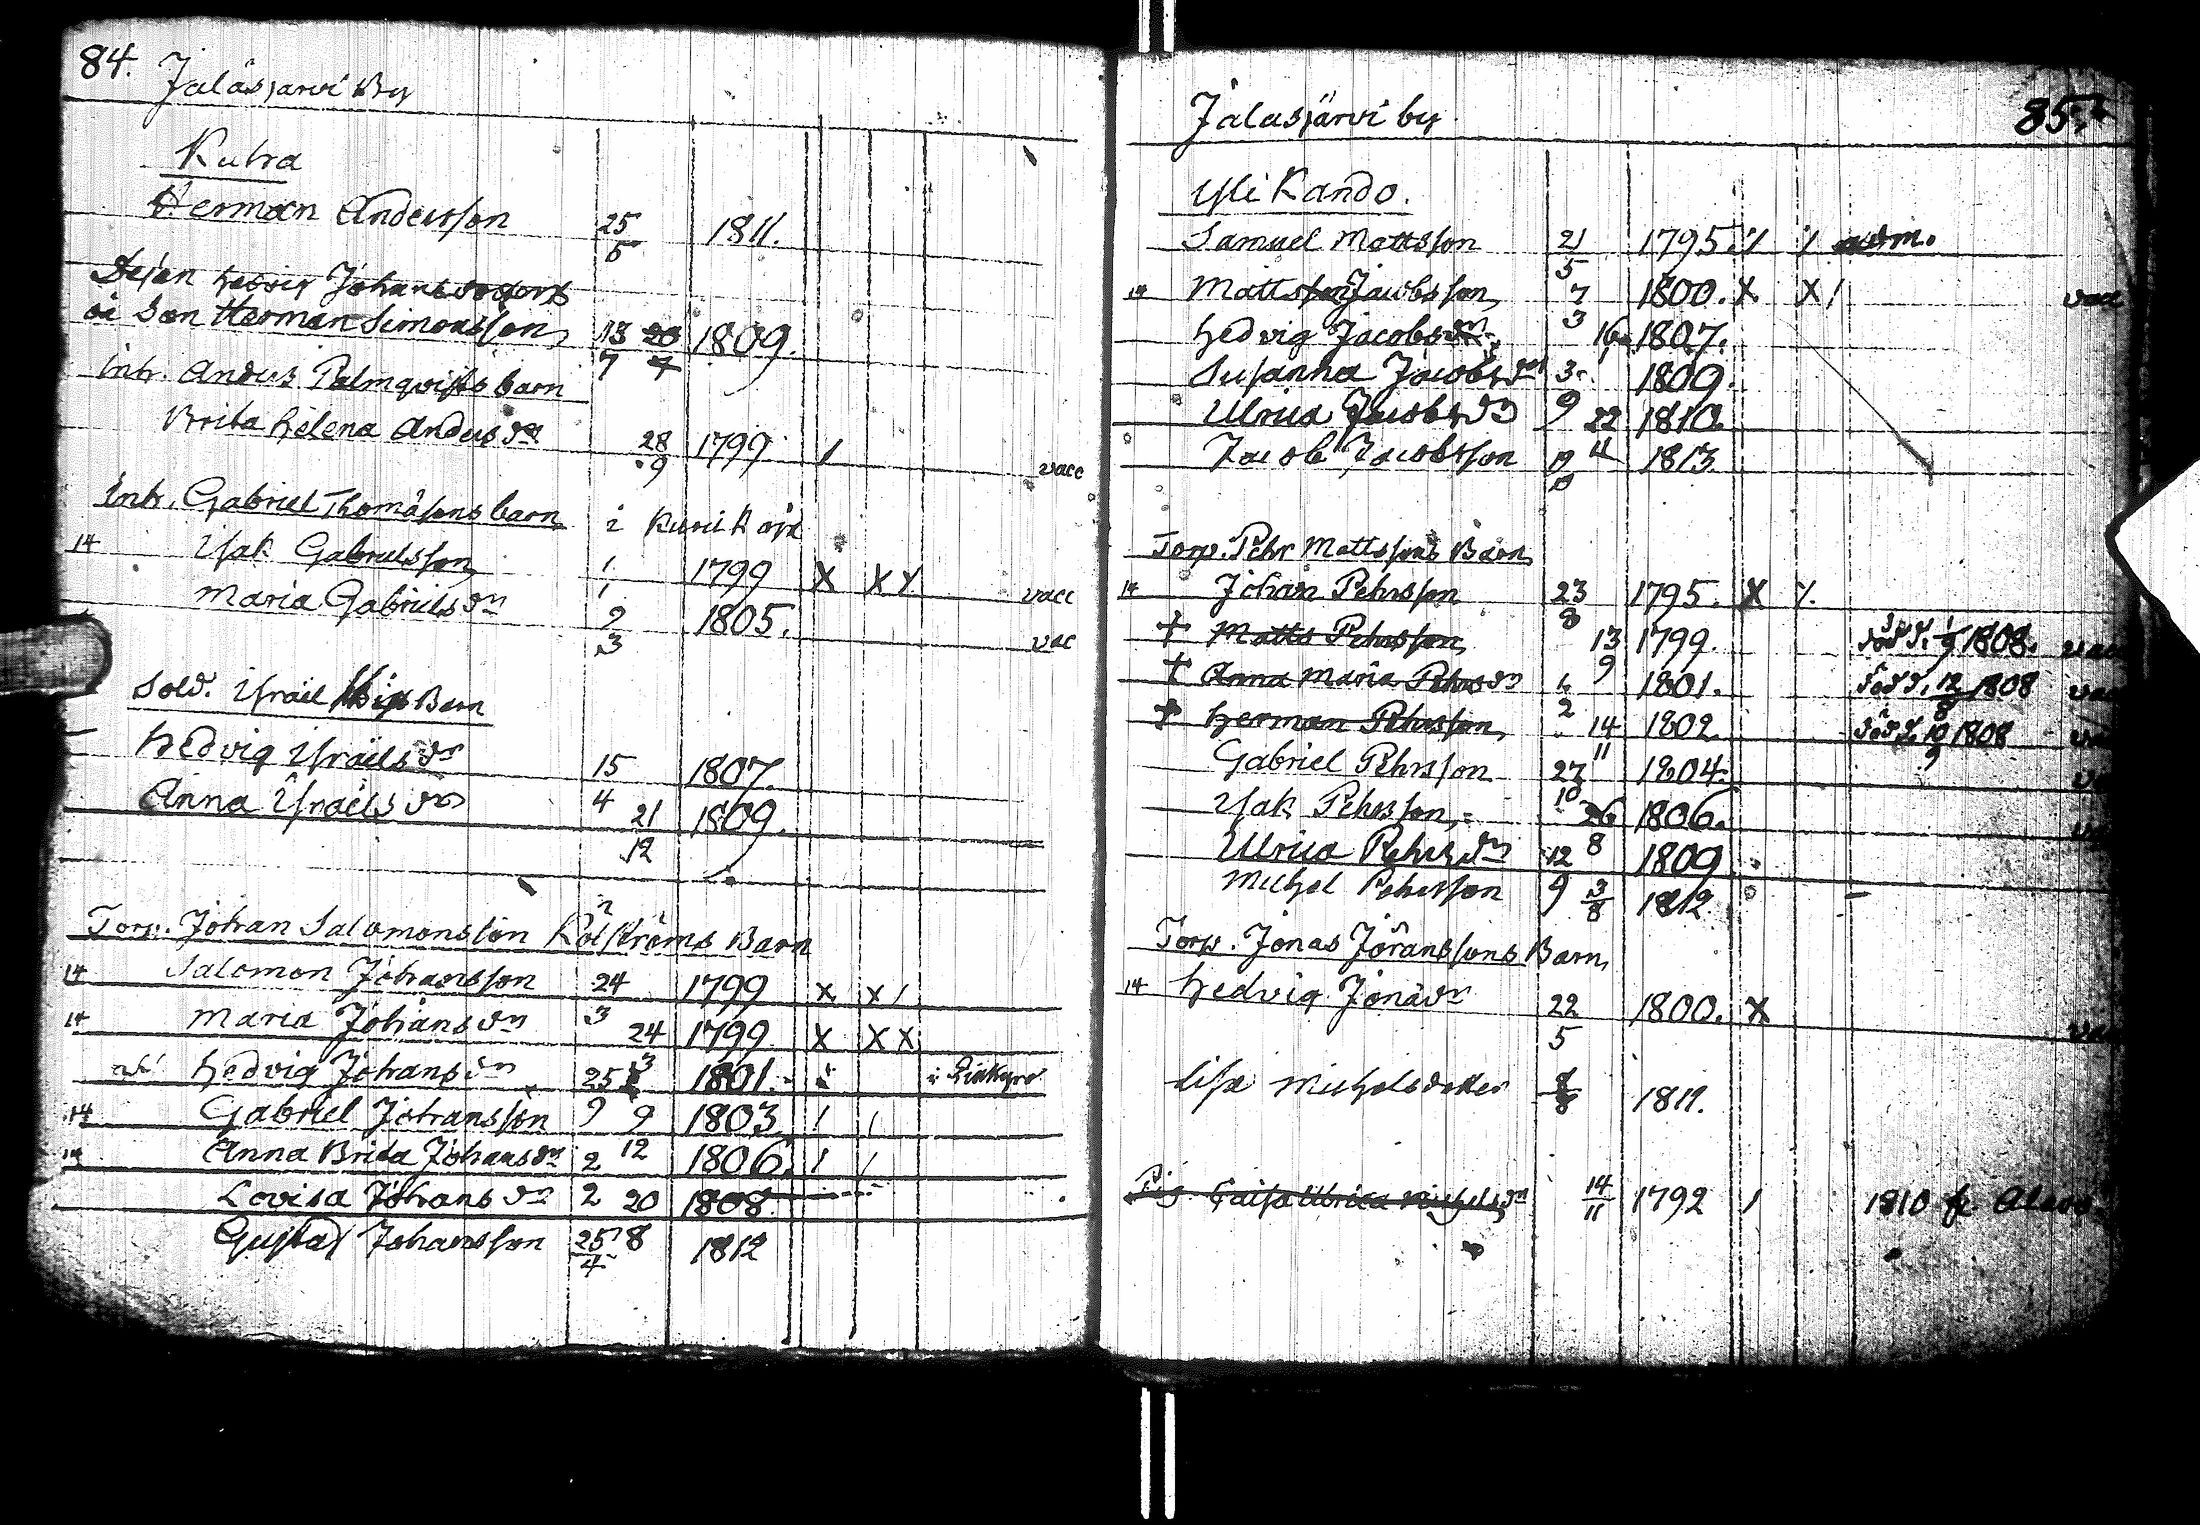 84.
Jalasjarvi By
Kutra
Herman Andersson 25/5 1811.
Pejan Hedvig Johansdotters
oä Son Herman Simonsson 13/7 20/7 1809.
Inh. Anders Palmqvists barn
Brita Helena Andersdr 28/9 1799 / vacc
Inh. Gabriel Thomäsons barn i
14 Isak Gabrielsson 1/1 1799 X X X vacc
Maria Gabrielsdr 9/3 1805. vac
Sold. Israel Barn
Hedvig Israelsdr 15/4 1807.
Anna Israelsdr 21/12 1809.
Torp. Johan Salomonsson Kölströms Barn
14 Salomon Johansson 24/3 1799 X X /
14 Maria Johansdr 24/3 1799 X X X
Hedvig Johansdr 25/9 1801.
14 Gabriel Johansson 9/12 1803 / /
14 Anna Brita Johansdr 2/2 1806. / /
Lovisa Johansdr 20/8 1808
Gustaf Johansson 25/4 1812
85.
Jalasjärvi by
Yli Kando.
Samuel Mattsson 21/5 1795
14 Mattsson Jacobsson 7/3 1800. X X / vacc
Hedvig Jacobsdr 16 1807.
Susanna Jacobsdr 3/9 1809.
Ulrica Jacobsdr 22/11 1810.
Jacob Jacobsson 1813
Torp. Pehr Mattssons Barn
14 Johan Pehrsson 23/8 1795. X
+ Matts Pehrsson 13/9 1799. död d. 1/9 1808.
+ Anna Maria Pehrsdr 1801. död d. 12/8 1808
+ Herman Pehrsson 14/11 1802 död d. 10/9 1808
Gabriel Pehrsson 27/10 1804.
Isak Pehrsson 26/8 1806.
Ulrica Pehrsdr 12/9 1809
Michel Pehrsson 3/8 1812
Torp. Jonas Joranssons Barn
14 Hedvig Jonadr 22/5 1800. X
Lisa Michelsdotter 1811.
Pig. Caisa Ulrica Michelsdr 14/11 1792 / 1810 fr.